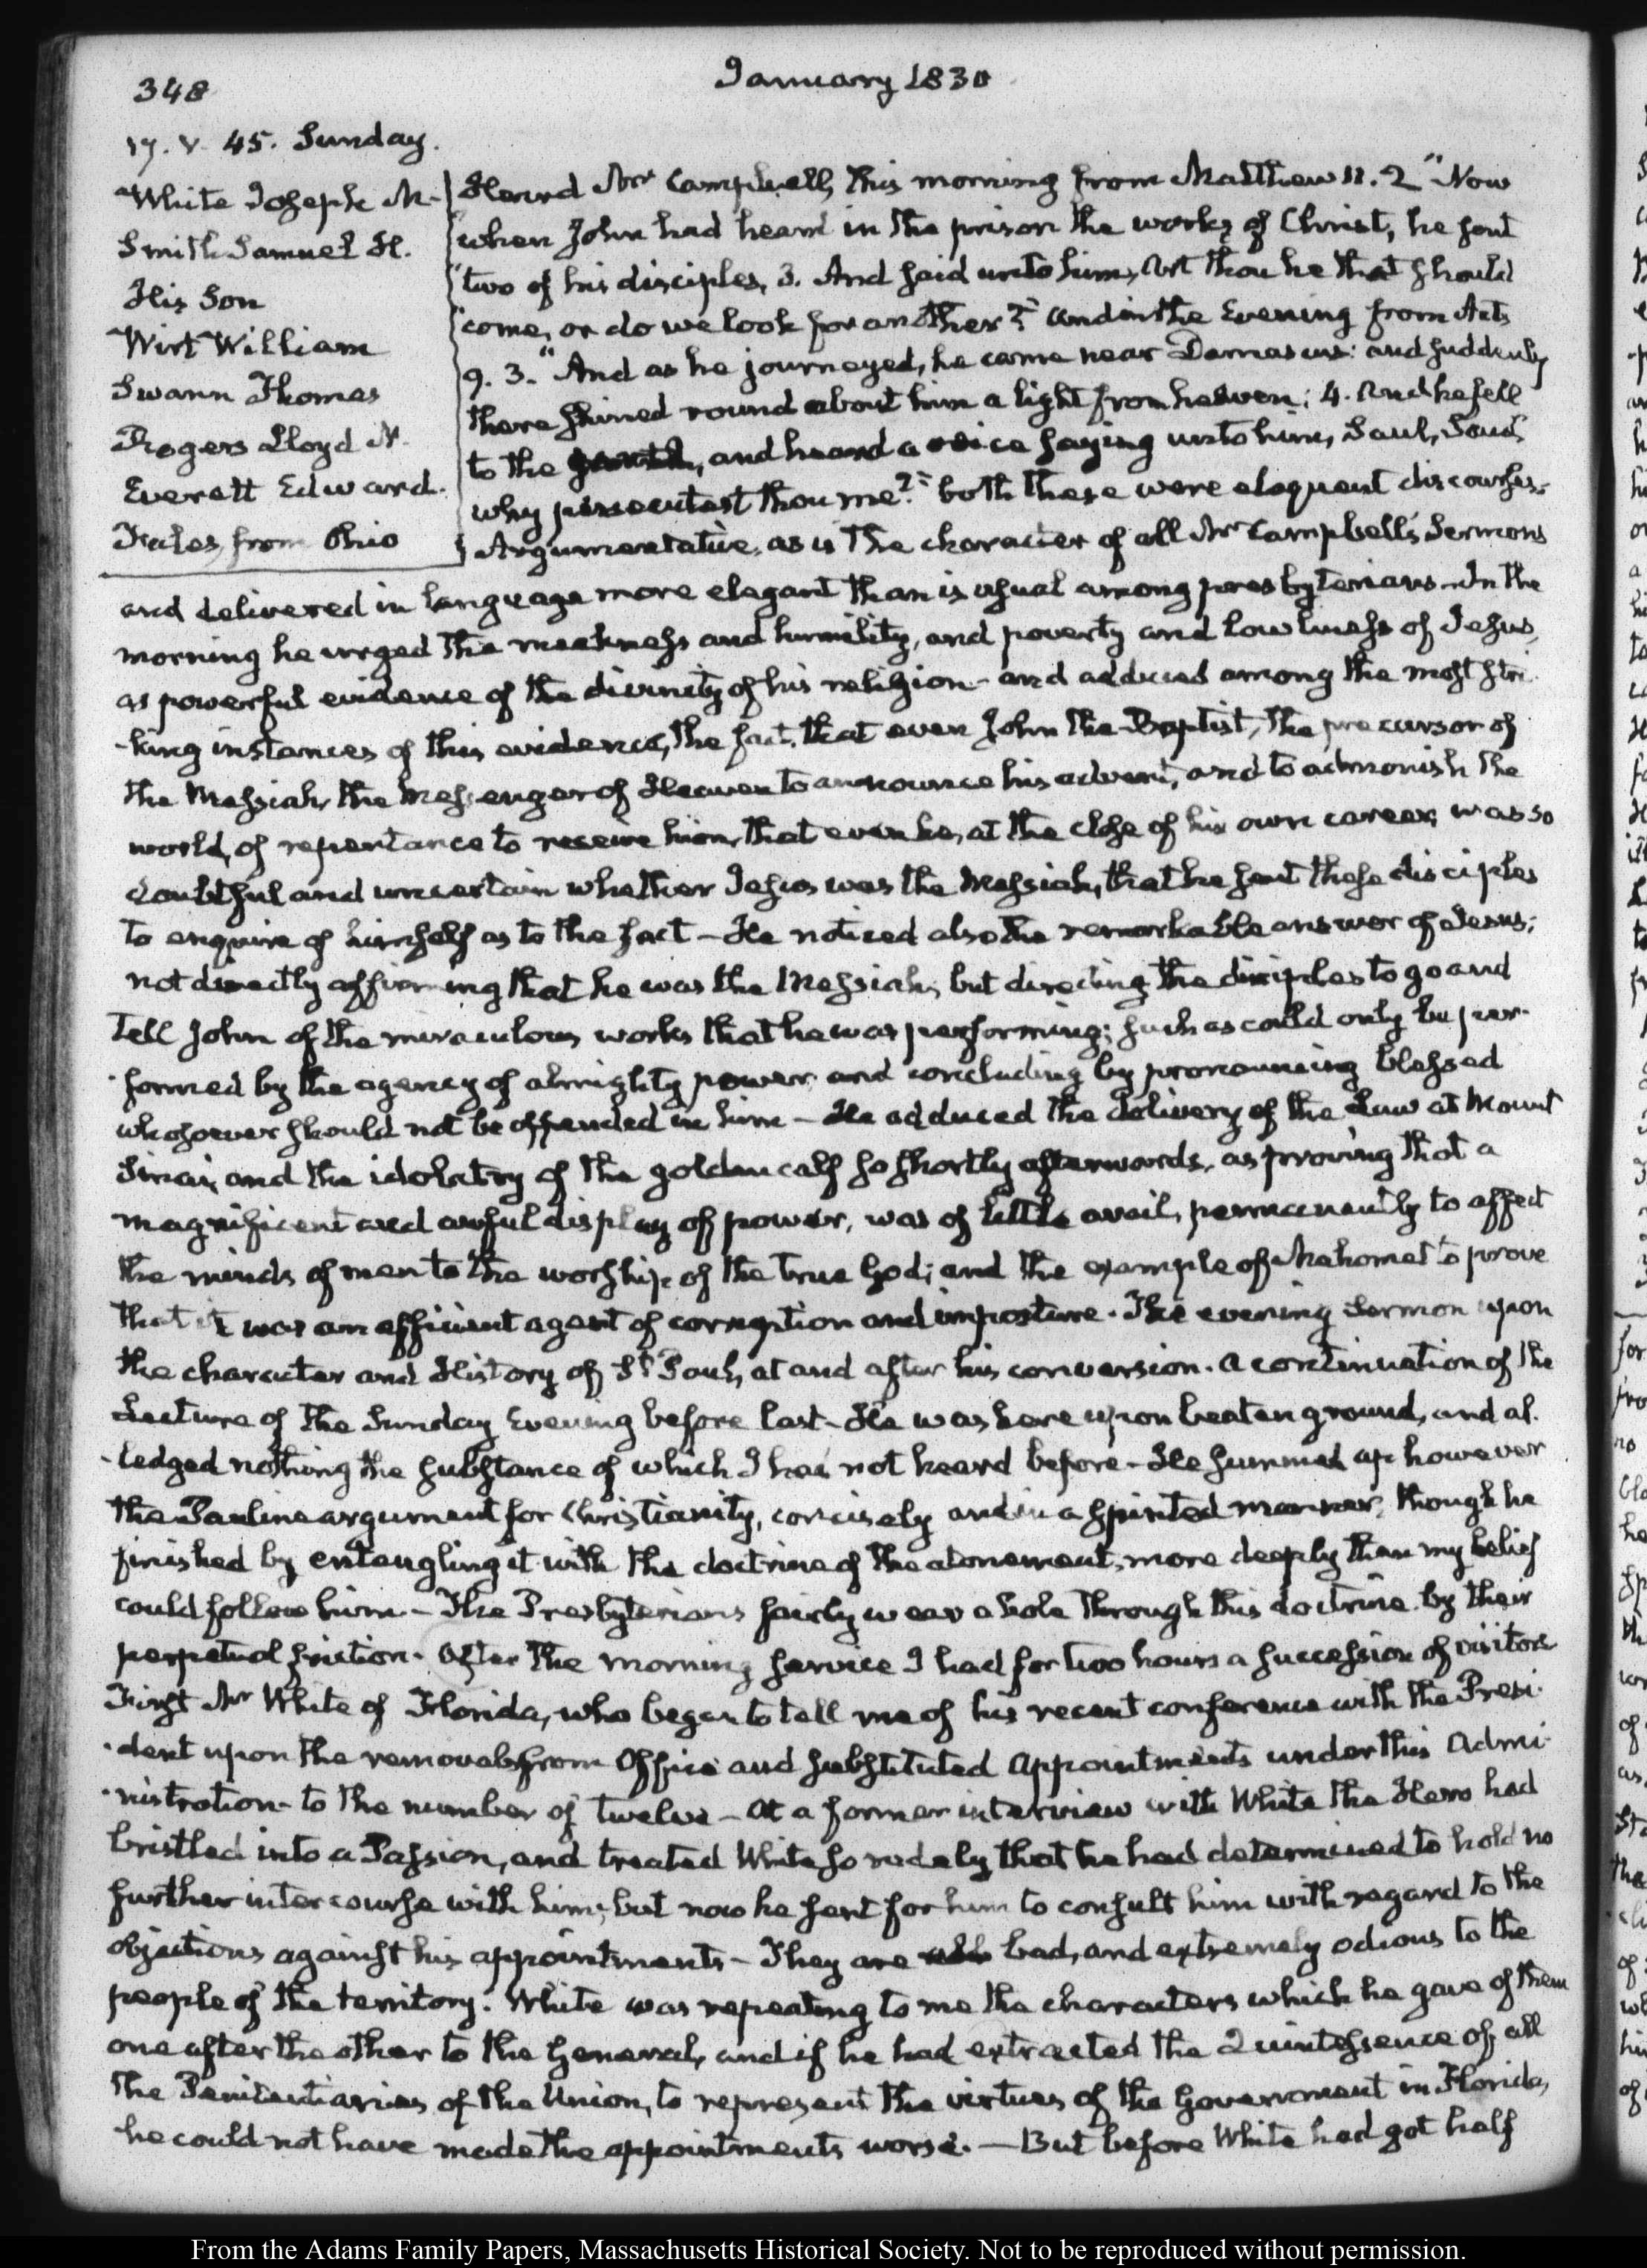 348
January 1830
17. V. 45. Sunday.
White Joseph M.
Smith Samuel H.
His Son
Wirt William
Swann Thomas
Rogers Lloyd N.
Everett Edward.
from Ohio
Heard Mr Campbell, this morning from Matthew 11. 2 "Now
"when John had heard in the prison the works of Christ, he sent
"two of his disciples, 3. And said unto him, Art thou he that should
"come, or do we look for another?" and in the Evening from Acts
9. 3. "And as he journeyed, he came near Damascus: and suddenly
there shined round about him a light from heaven: 4. And he fell
to the earth, and heard a voice saying unto him, Saul, Saul,
why persecutest thou me?" both these were eloquent discourses-
Argumentative, as is the character of all Mr Campbell's Sermons
and delivered in language more elegant than is usual among presbyterians - In the
morning he urged the meekness and humility, and poverty and lowliness of Jesus,
as powerful evidence of the divinity of his religion - and adduced among the most stri-
-king instances of this evidence, the fact, that even John the Baptist, the precursor of
the Messiah, the Messenger of Heaven to announce his advent, and to admonish the
world, of repentance to receive him, that even he, at the close of his own career, was so
doubtful and uncertain whether Jesus was the Messiah, that he sent these disciples
to enquire of himself as to the fact - He noticed also the remarkable answer of Jesus;
not directly affirming that he was the Messiah, but directing the disciples to go and
tell John of the miraculous works that he was performing; such as could only be per-
-formed by the agency of almighty power, and concluding by pronouncing blessed
whosoever should not be offended in him - He adduced the delivery of the Law at Mount
Sinai, and the idolatry of the golden calf so shortly afterwards, as proving that a
magnificent and awful display of power, was of little avail, permanently to affect
the minds of men to the worship of the true God; and the example of Mahomet to prove
that it was an efficient agent of corruption and imposture. The evening Sermon upon
the character and History of St Paul, at and after his conversion. a continuation of the
Lecture of the Sunday Evening before last - He was here upon beaten ground, and al-
-ledged nothing the substance of which I had not heard before - He summed up however
the Pauline argument for Christianity, concisely and in a spirited manner, though he
finished by entangling it with the doctrine of the atonement, more deeply than my belief
could follow him - The Presbyterians fairly wear a hole through this doctrine by their
perpetual friction. After the morning service I had for two hours a succession of visitors
First Mr White of Florida, who began to tell me of his recent conference with the Presi-
-dent upon the removals from Office and substituted appointments under this Admi-
-nistration - to the number of twelve - At a former interview with White the Hero had
bristled into a Passion, and treated White so rudely that he had determined to hold no
further intercourse with him; but now he sent for him to consult him with regard to the
objections against his appointments - They are all bad, and extremely odious to the
people of the territory. White was repeating to me the characters which he gave of them
one after the other to the General, and if he had extracted the Quintessence of all
the Penitentiaries of the Union, to represent the virtues of the Government in Florida,
he could not have made the appointments worse. - But before White had got half
From the Adams Family Papers, Massachusetts Historical Society. Not to be reproduced without permission.